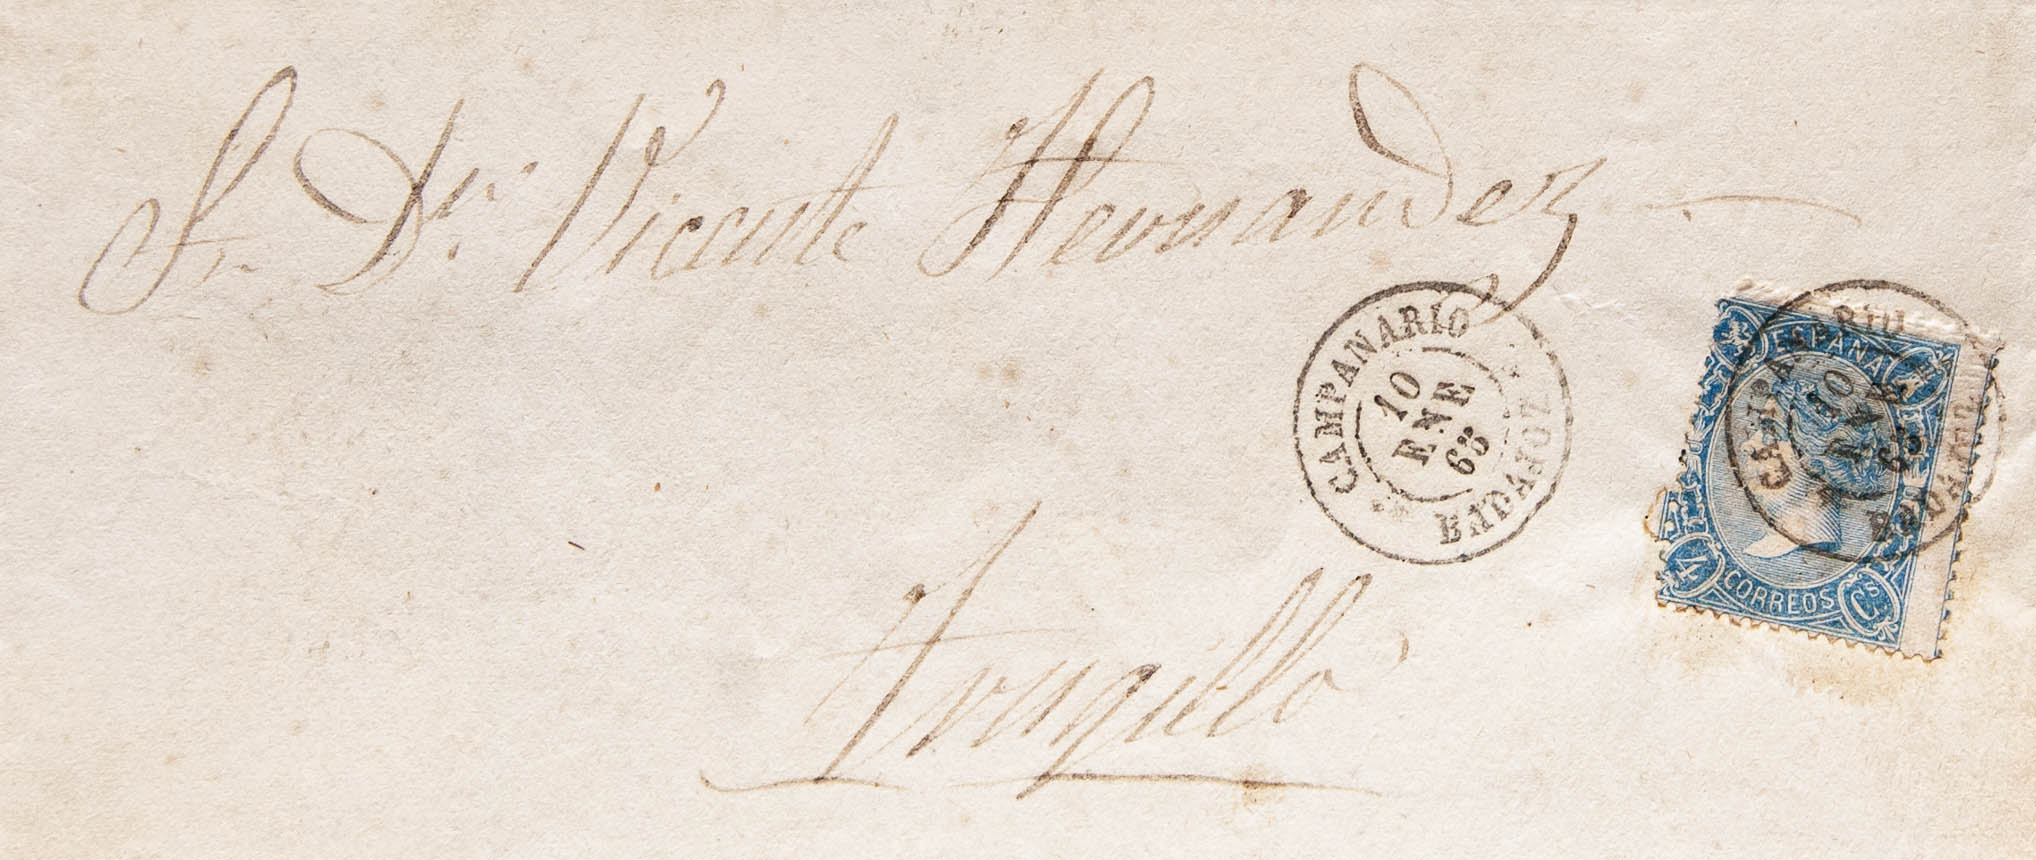 Sr. Dn. Vicente Hernandez
CAMPANARIO
10
ENE
65
BADAJOZ
ESPAÑA
10
ENE
65
BADAJOZ
4 CORREOS Cs
Trugillo